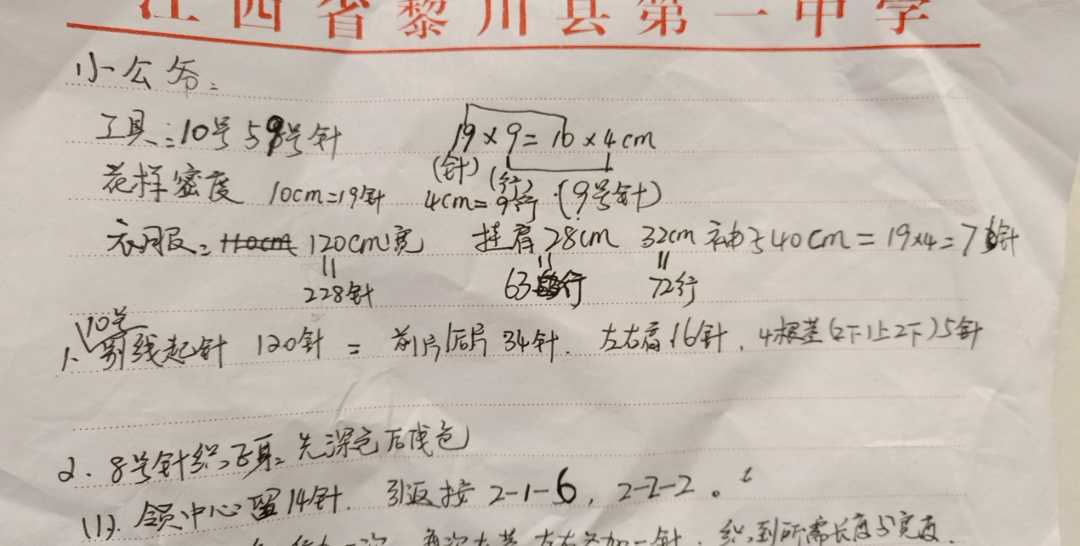 江西省黎川县第一中学
小公爷:
工具:10号与9号针 19×9=16×4cm
(针) (行)
花样密度 10cm=19针 4cm=9行 (9号针)
衣服: 110cm 120cm宽 挂肩28cm 32cm 袖子40cm=19×4=76针
228针 63行 72行
10号
1、别线起针 120针= 前片后片34针. 左右肩16针, 4根茎(2下1上2下)5针
2. 8号针织正身: 先深色后浅色
(1). 领中心留14针. 引返按 2-1-6, 2-2-2。
一次 左右各加一针, 织到所需长度与宽度.